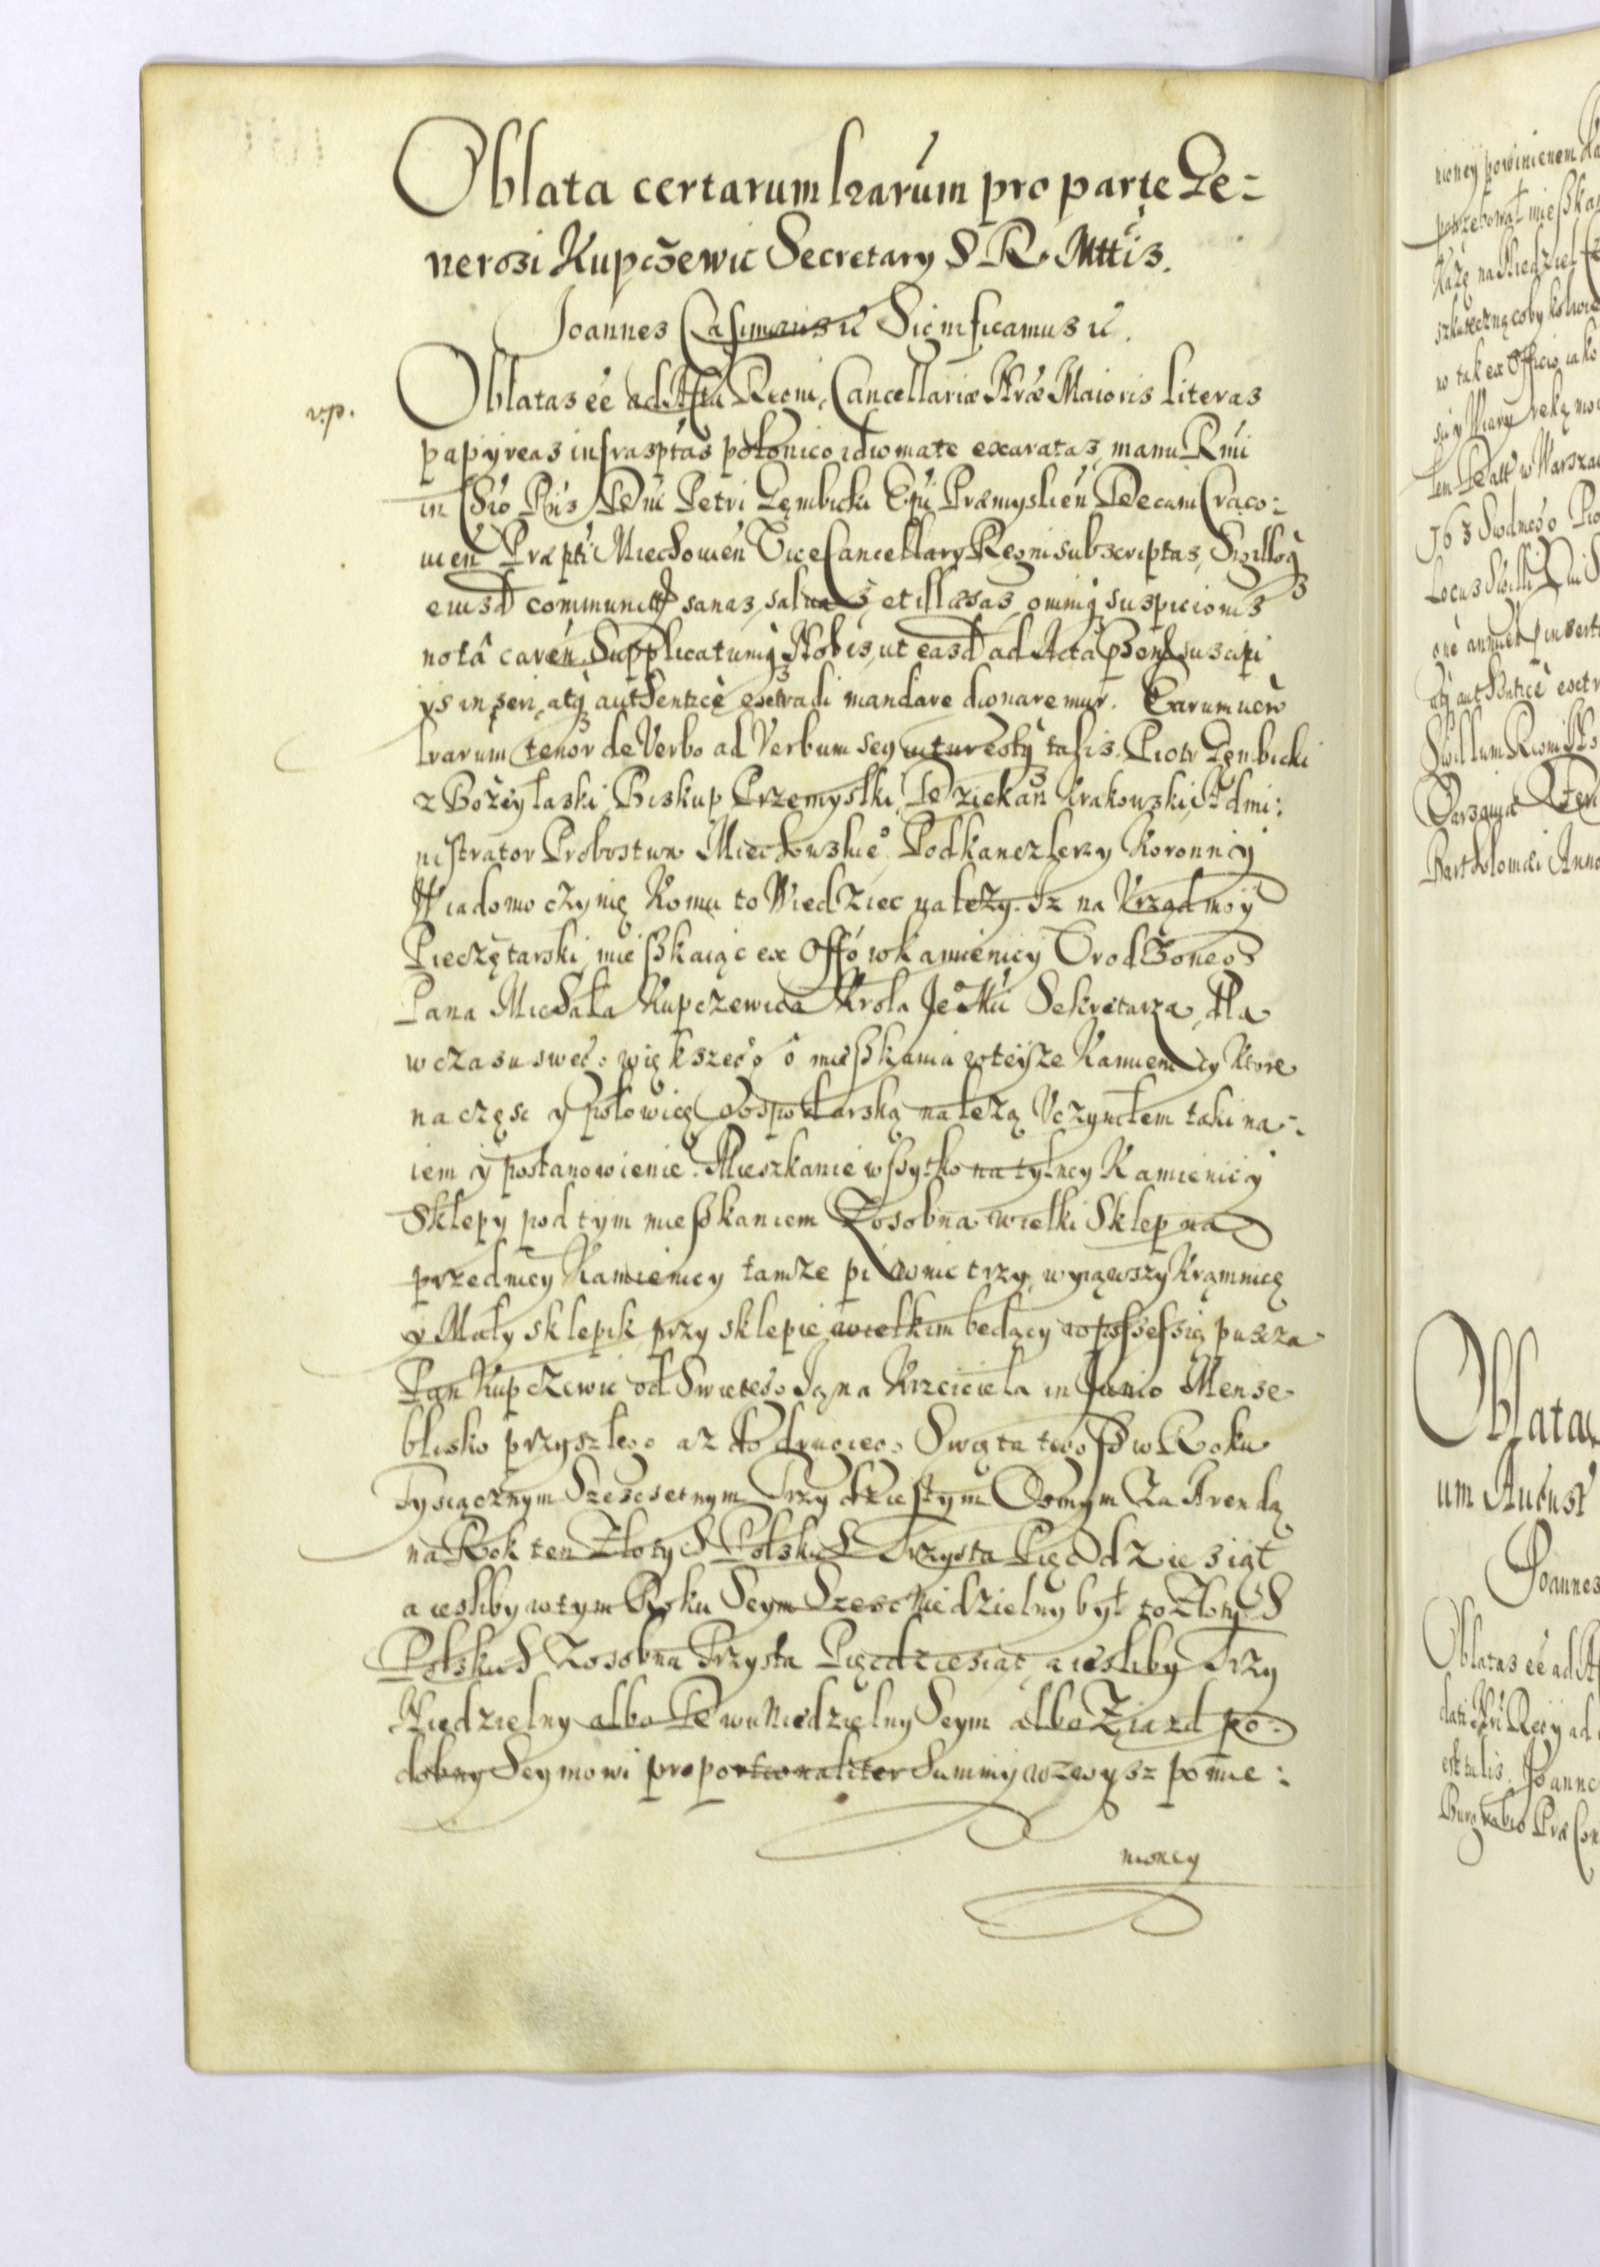 Oblata certarum lrarum pro parte Ge-
nerosi Kupczewic Secretarÿ S R. Mttis.
Joannes Casimirus etc Significamus etc.
v.p.
Oblatas eē ad Acta Regni Cancellariæ Nræ Maioris literas
papÿreas infrasptas polonico idiomate exaratas, manu Rmi
in Chro Pris Dni Petri Gembicki Epi Præmyslien Decani Craco-
uien Præpti Miechouien ViceCancellarÿ Regni subscriptas, Sigilloq
eiusd communitas sanas, saluas, et illæsas, omniq suspicionis
notâ caren. Supplicatumq Nobis, ut easd ad Acta præsen suscipi
ÿs inseri, atq authenticè extradi mandare dignaremur. Earum uerò
lrarum tenor de Verbo ad Verbum sequitur estq talis. Piotr Gembicki
z Bożey łaski Biskup Przemyslki, Dziekan Krakowski, Admi-
nistrator Probostwa Miechowskie° Podkanclerzy Koronny
Wiadomo czynię Komu to Wiedziec należy. Iz na Vrząd moy
Pieczętarski, mießkaiąc ex Offo w kamienicy Vrodzone°
Pana Michała Kupczewica Krola Je° Mci Sekretarza, dla
wczasu swego większego o mießkania w teyże Kamienicy Ktore
na częsc y połowicę Gospodarską należą Vczyniłem taki na-
iem y postanowienie. Mieszkanie wßytko na tylney Kamienicy
Sklepy pod tym mießkaniem Zosobna wielki Sklep na
przedniey Kamienicy tamże piwnic trzy, wyiąwszy Kramnicę
y Mały sklepik przy sklepie wielkim będący w possessią puszcza
Pan Kupczewic od Swietego Jana Krzciciela in Junio Mense
blisko przyszłego az do drugiego Swięta tego ß w Roku
Tysiącznym Szescsetnym Trzydziestym Osmym Za Arendą
na Rok ten Złotych Polskich Trzysta Pięcdziesiąt
a iesliby w tym Roku Seym Szesc Niedzielny był to Złotych
Polskich Zosobna Trzysta Pięcdziesiąt, a iesliby Trzy
Niedzielny albo Dwu Niedzielny Seym albo Ziazd po-
dobny Seymowi proportionaliter Summy wzwysz pomie-
nioney
nioney powinienem
potrzebował mießkan
szkuteczną coby kolwiek
no tak ex Officio iako
Ten Datt w Warszaw
Locus Sigilli
atq authenticè extr
Sigillum Regni
Varsauiæ
Bartholomæi Anno
Oblata
um August
Joannes
Oblatas eē ad A
est talis. Joanne